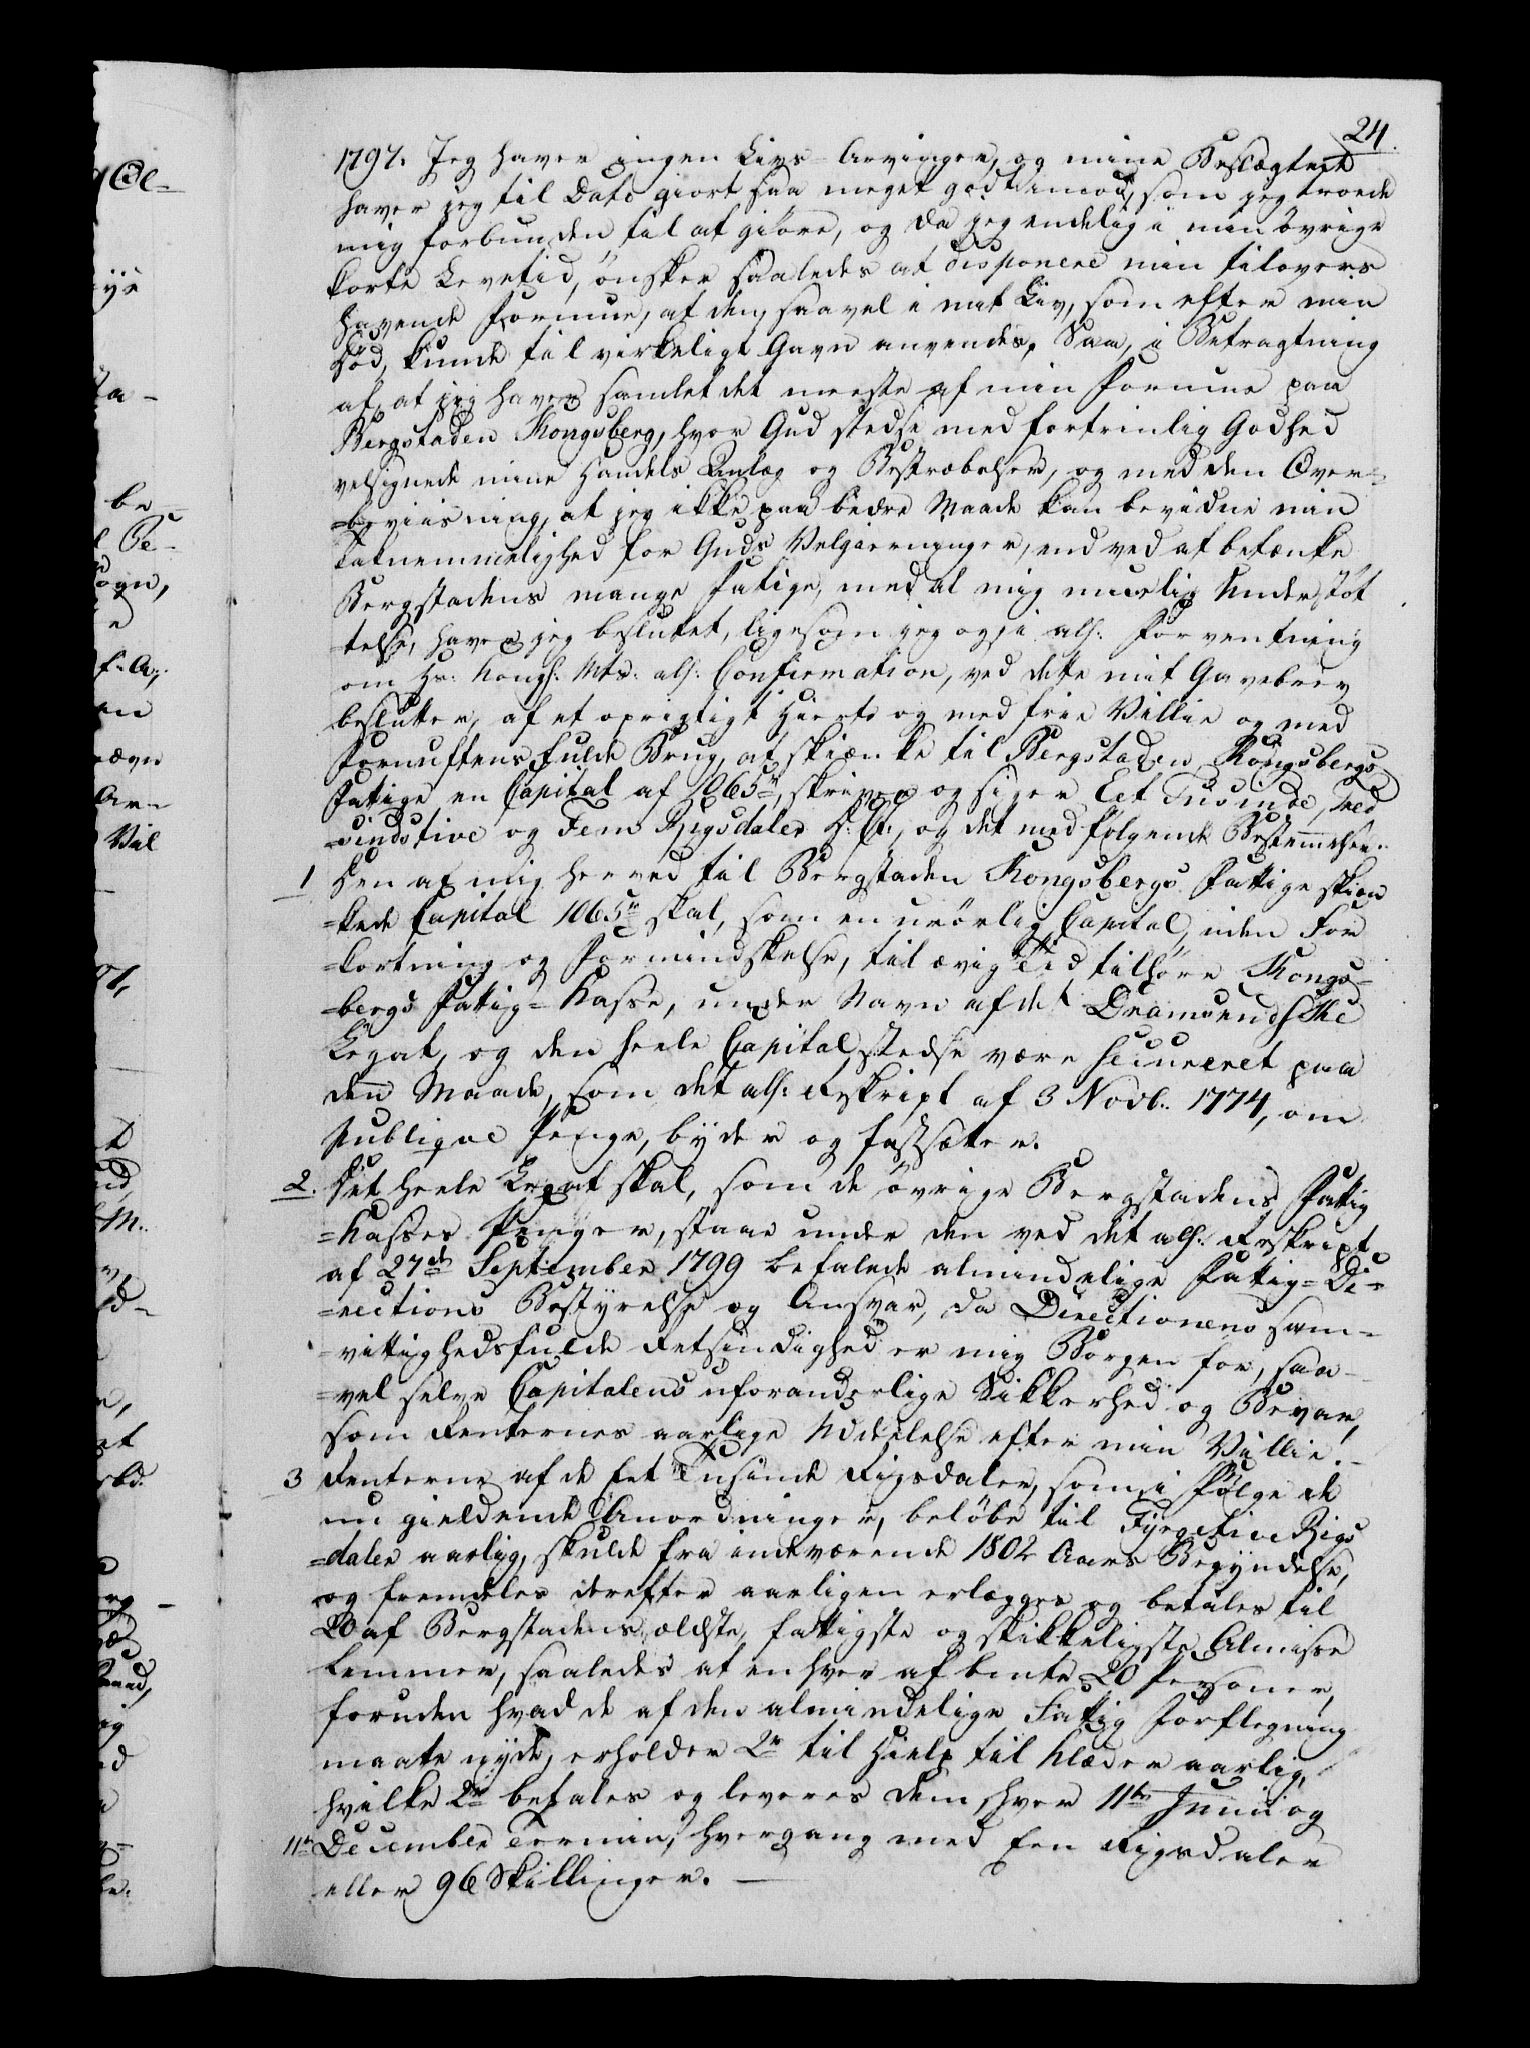 24.
1797. Jeg haver ingen Livs-Arvinger, og mine Beslægtede
haver jeg til Dato giort saa meget godt imod, som jeg troede
mig forbunden til at giöre, og da jeg endelig i min övrige
korte Levetid, önsker saaledes at disponere min tilovers
havende Formue, at den, saavel i mit Liv, som efter min
Död, kunde til virkeligt Gavn anvendes, Saa, i Betragtning
af, at jeg haver samlet det meeste af min Formue paa
Bergstaden Kongsberg, hvor Gud stedse med fortrinlig Godhed
velsignede mine Handels Anlæg og Bestræbelser, og med den Over-
=beviisning, at jeg ikke paa bedre Maade kan bevidne min
taknemmelighed for Guds Velgierninger, end ved at betænke
Bergstadens mange Fatige, med al mig muelig Understöt
=telse, haver jeg beslutet, ligesom jeg og i alh: Forventning
om Hs: Kongl: Mts: alh: Confirmation, ved dette mit Gavebrev
beslutter, af et oprigtigt Hierte og med frie Villie og med
Fornuftens fulde Brug, at skiænke til Bergstaden Kongsbergs
Fatige en Capital af 1065 rd, skriver og siger Eet Tusinde, Tred
=sindstive og Fem Rigsdaler D: C:, og det med fölgende Bestemmelser:
1 Den af mig herved til Bergstaden Kongsbergs Fattige skiæn
=kede Capital 1065 rd skal, som en urörlig Capital, uden For
=kortning og Formindskelse, til ævig Tid tilhöre Kongs-
=bergs Fattig-Kasse, under Navn af det Dramsendske
Legat, og den heele Capital stedse være secureret paa
den Maade, som det alh: Reskript af 3 Novb. 1774, om
Publique Penge, byder og fastsætter.
2. Det heele Legat skal, som de övrige Bergstadens Fattig
=Kasses Penger, staae under den ved det alh: Reskript
af 27de September 1799 befalede almindelige Fattig-Di-
=rections Bestyrelse og Ansvar, da Directionens sam-
=vittighedsfulde Retsindighed er mig Borgen for, saa-
=vel selve Capitalens uforanderlige Sikkerhed og Bevar,
som Renternes aarlige Uddeelelse efter min Villie.
3 Renterne af de Eet Tusinde Rigsdaler, som i Fölge de
nu gieldende Anordninger, belöbe til Fyrgetive Rigs
=daler aarlig, skulde fra indeværende 1802 Aars Begyndelse,
og fremdeles derefter aarligen erlægges og betales til
20 af Bergstadens ældste, fattigste og skikkeligste Almisse
Lemmer, saaledes at enhver af bemte 20 Personer,
foruden hvad de af den almindelige Fattig Forflegning
maatte nyde, erholder 2 rd til Hielp til Klæder aarlig,
hvilke 2 rd betales og leveres dem hver 11te Junii og
11te December Termin, hvergang med Een Rigsdaler
eller 96 Skillinger.